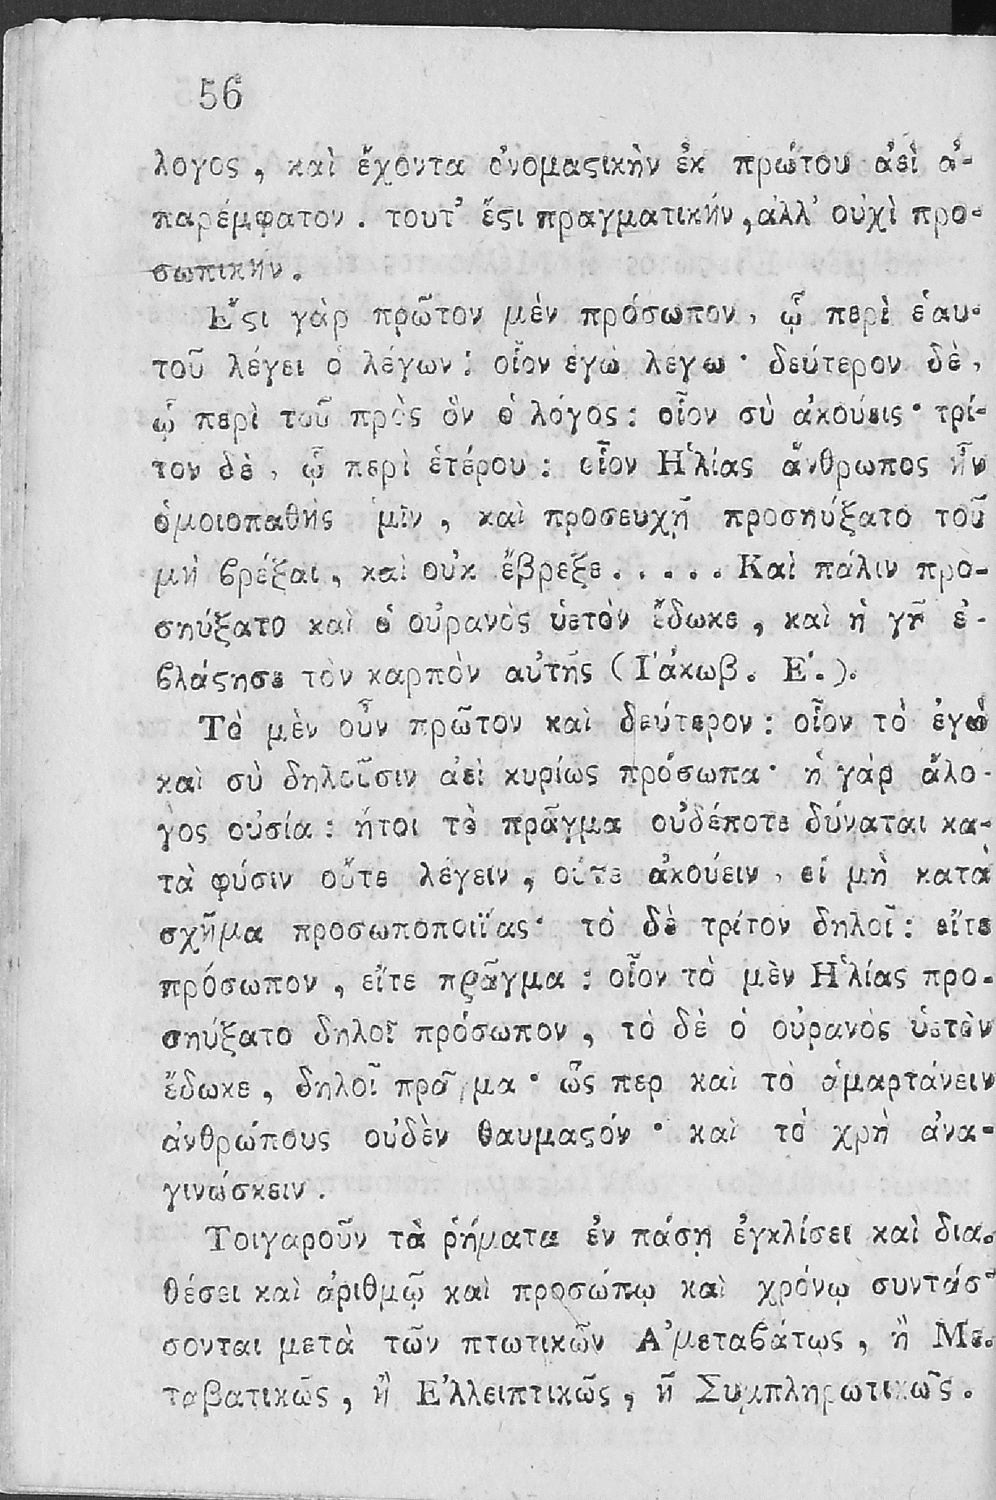 56
λογος, καὶ ἔχοντα ὀνομαϛικὴν ἐκ πρώτου ἀεὶ ἀ-
παρέμφατον. τουτ' ἔϛι πραγματικήν, ἀλλ' οὐχὶ προ-
σωπικήν.
Ἔϛι γὰρ πρῶτον μὲν πρόσωπον, ᾧ περὶ ἑαυ-
τοῦ λέγει ὁ λέγων: οἷον ἐγὼ λέγω· δεύτερον δὲ,
ᾧ περὶ τοῦ πρὸς ὃν ὁ λόγος: οἷον σὺ ἀκούεις· τρί-
τον δὲ, ᾧ περὶ ἑτέρου: οἷον Ἡλίας ἄνθρωπος ἦν
ὁμοιοπαθὴς ἡμῖν, καὶ προσευχῇ προσηύξατο τοῦ
μὴ ϐρέξαι, καὶ οὐκ ἔβρεξε..... Καὶ πάλιν προ-
σηύξατο καὶ ὁ οὐρανὸς ὑετὸν ἔδωκε, καὶ ἡ γῆ ἐ-
ϐλάϛησε τὸν καρπὸν αὐτῆς (Ἰάκωβ. Ε΄.).
Τὸ μὲν οὖν πρῶτον καὶ δεύτερον: οἷον τὸ ἐγὼ
καὶ σὺ δηλοῦσιν ἀεὶ κυρίως πρόσωπα· ἡ γὰρ ἄλο-
γος οὐσία: ἤτοι τὸ πρᾶγμα οὐδέποτε δύναται κα-
τὰ φύσιν οὔτε λέγειν, οὔτε ἀκούειν, εἰ μὴ κατὰ
σχῆμα προσωποποιΐας· τὸ δὲ τρίτον δηλοῖ: εἴτε
πρόσωπον, εἴτε πρᾶγμα: οἷον τὸ μὲν Ἡλίας προ-
σηύξατο δηλοῖ πρόσωπον, τὸ δὲ ὁ οὐρανὸς ὑετὸν
ἔδωκε, δηλοῖ πρᾶγμα· ὥς περ καὶ τὸ ἁμαρτάνειν
ἀνθρώπους οὐδὲν θαυμαϛόν· καὶ τὸ χρὴ ἀνα-
γινώσκειν.
Τοιγαροῦν τὰ ῥήματα ἐν πάσῃ ἐγκλίσει καὶ δια-
θέσει καὶ ἀριθμῷ καὶ προσώπῳ καὶ χρόνῳ συντάσ-
σονται μετὰ τῶν πτωτικῶν Ἀμεταϐάτως, ἢ Με-
ταβατικῶς, ἢ Ἐλλειπτικῶς, ἢ Συμπληρωτικῶς.